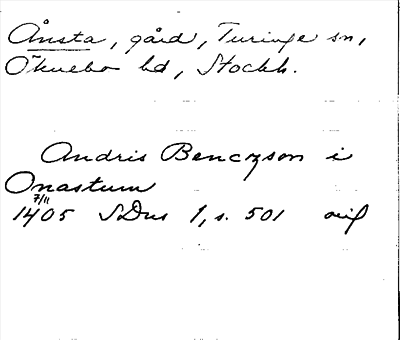 Ånsta, gård, Turinge sn,
Öknebo hd, Stockh.
Andris Benczson i
Onastum
7/11
1405 SDns 1, s. 501 orig